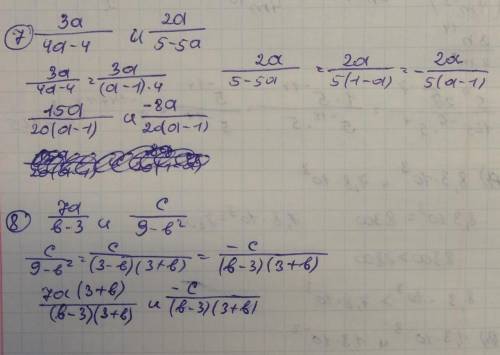 7) 3a/(4a-4) и 2a/(5-5a)
3a/(4a-4) = 3a/((a-1)·4) 2a/(5-5a) = 2a/(5(1-a)) = -2a/(5(a-1))
15a/(20(a-1)) и -8a/(20(a-1))
8) 7a/(b-3) и c/(9-b²)
c/(9-b²) = c/((3-b)(3+b)) = -c/((b-3)(3+b))
7a(3+b)/((b-3)(3+b)) и -c/((b-3)(3+b))